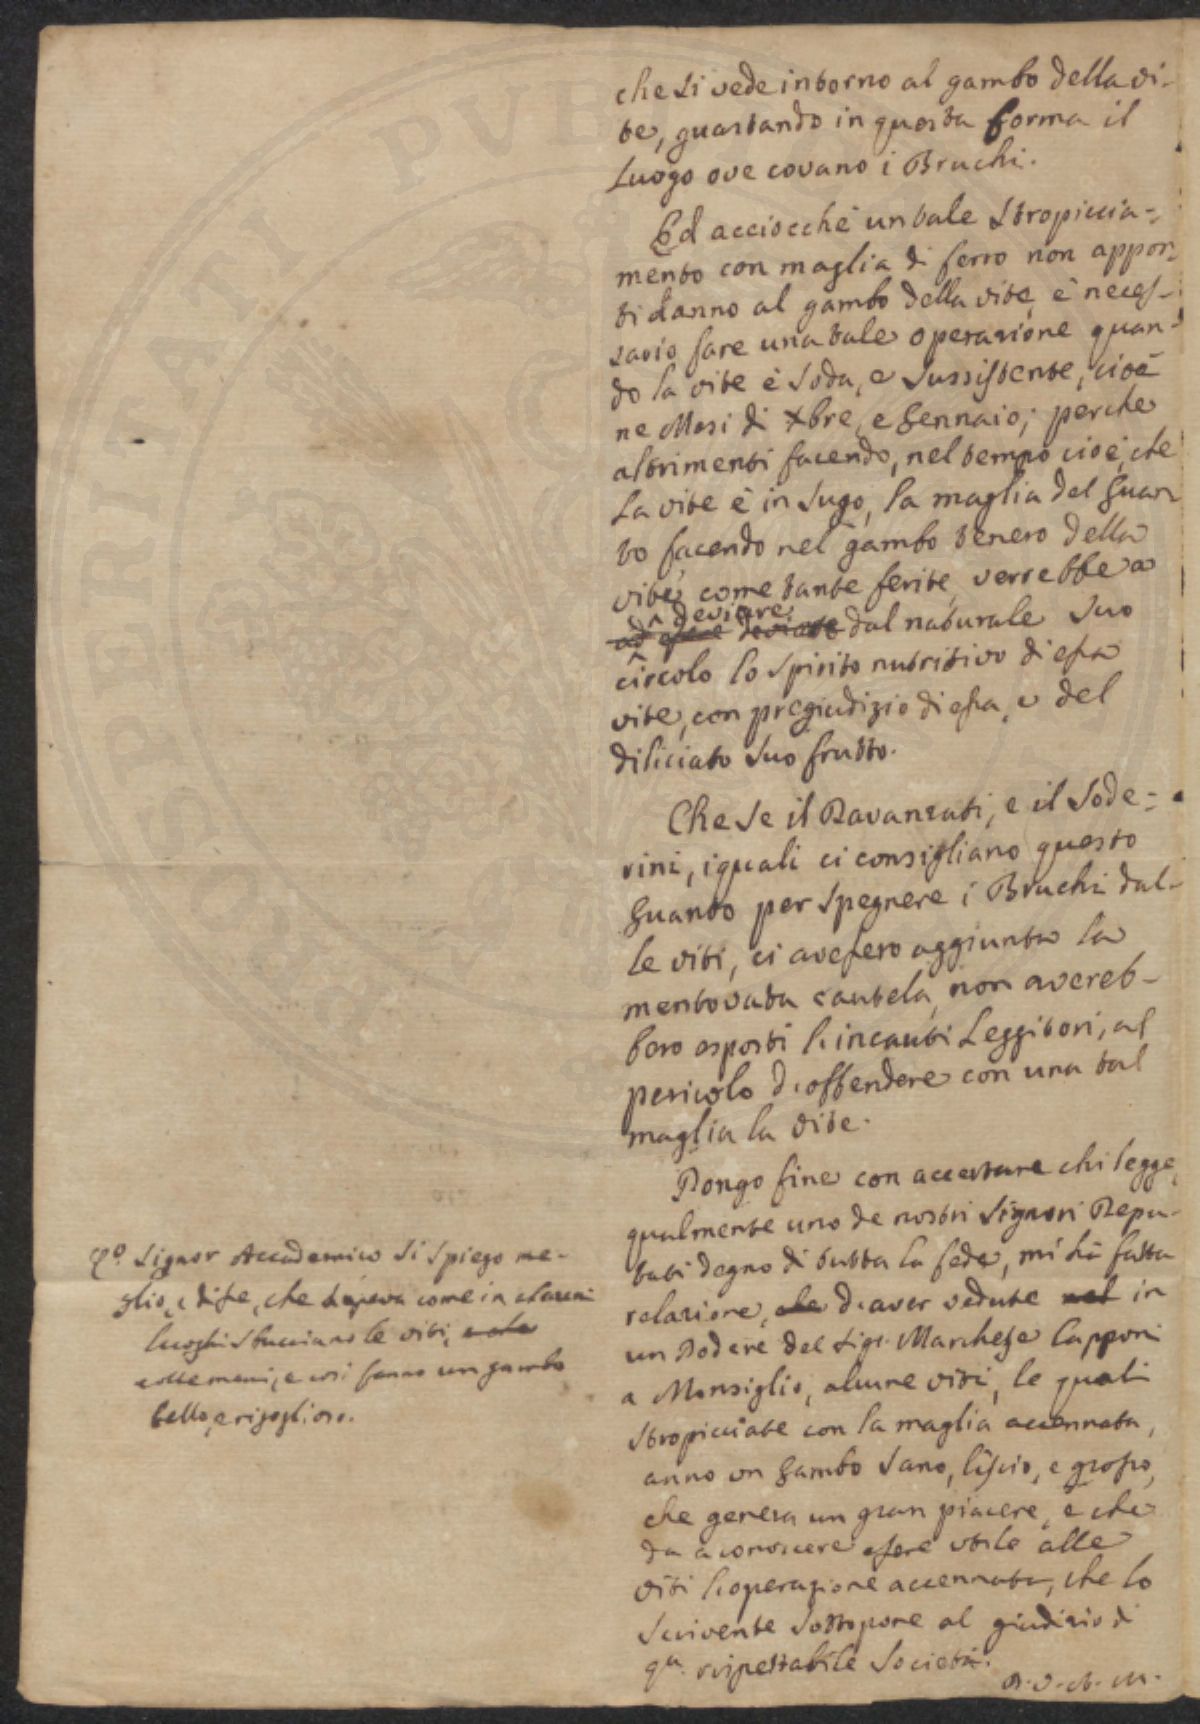 che si vede intorno al gambo della vi-
te, guastando in questa forma il
Luogo ove covano i Bruchi.
Ed acciocchè un tale stropiccia=
mento con maglia di ferro non appor-
ti danno al gambo della vite, è neces-
sario fare una tale operazione quan-
do la vite è soda, e sussistente, cioè
ne Mesi di Xbre, e Gennaio; perche
altrimenti facendo, nel tempo cioè, che
La vite è in sugo, la maglia del Guan-
to facendo nel gambo tenero della
vite, come tante ferite, verrebbe a
deviare
ad essere deviate dal naturale suo
circolo lo spirito nutritivo di essa
vite, con pregiudizio di essa, e del
diliciato suo frutto.
Che se il Davanzati, e il Sode=
rini, i quali ci consigliano questo
Guanto per spegnere i Bruchi dal-
le viti, ci avessero aggiunta la
mentovata cautela, non avereb-
bero esposti l'incauti Leggitori, al
pericolo d'offendere con una tal
maglia la vite.
Pongo fine con accertare chi legge,
qualmente uno de nostri Signori Depu-
tati degno di tutta la fede, mi hà fatta
relazione, che d'aver vedute nel in
un Podere del Sigr. Marchese Capponi
a Monsiglio, alcune viti, le quali
stropicciate con la maglia accennata,
anno un Gambo sano, liscio, e grosso,
che genera un gran piacere, e che
da a conoscere essere utile alle
viti l'operazione accennata, che lo
scrivente sottopone al giudizio di
qta. rispettabile Società.
Qo. Signor Accademico si spiegò me-
glio, e disse, che sapeva come in alcuni
luoghi stucciano le viti, e che
colle mani, e così fanno un gambo
bello, e rigoglioso.